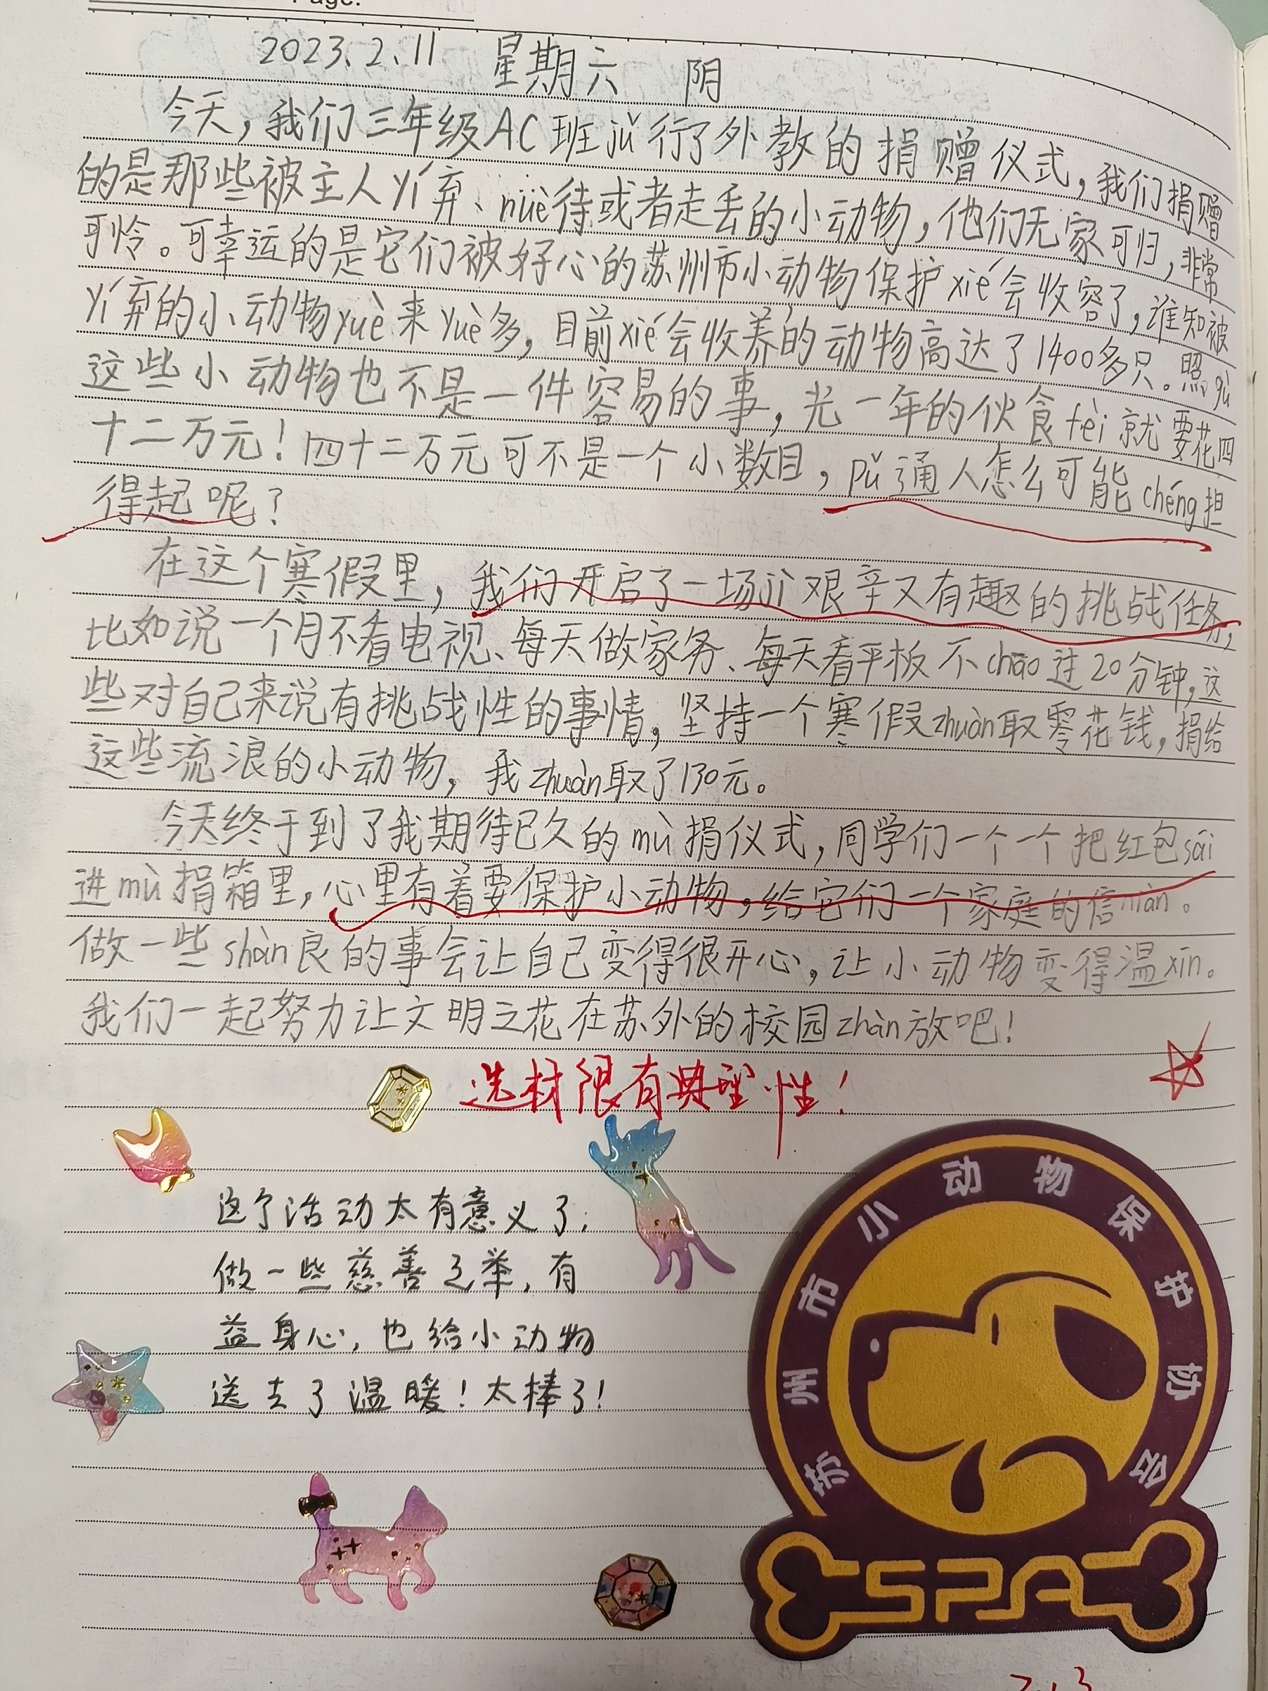 Page:
2023.2.11 星期六 阴
今天，我们三年级AC班jǔ行了外教的捐赠仪式，我们捐赠
的是那些被主人yí弃、nüè待或者走丢的小动物，他们无家可归，非常
可怜。可幸运的是它们被好心的苏州市小动物保护xié会收容了，谁知被
yí弃的小动物yuè来yuè多，目前xié会收养的动物高达了1400多只。照gù
这些小动物也不是一件容易的事，光一年的伙食fèi就要花四
十二万元！四十二万元可不是一个小数目，pǔ通人怎么可能chéng担
得起呢？
在这个寒假里，我们开启了一场jì艰辛又有趣的挑战任务，
比如说一个月不看电视、每天做家务、每天看平板不chāo过20分钟，这
些对自己来说有挑战性的事情，坚持一个寒假zhuàn取零花钱，捐给
这些流浪的小动物，我zhuàn取了130元。
今天终于到了我期待已久的mù捐仪式，同学们一个一个把红包sāi
进mù捐箱里，心里有着要保护小动物，给它们一个家庭的信niàn。
做一些shàn良的事会让自己变得很开心，让小动物变得温xīn。
我们一起努力让文明之花在苏外的校园zhàn放吧！
选材很有典型性！
这个活动太有意义了，
做一些慈善之举，有
益身心，也给小动物
送去了温暖！太棒了！
苏州市小动物保护协会
SPA